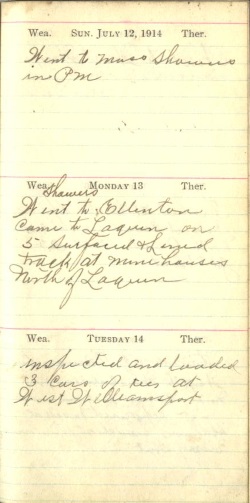 Wea. SUN. JULY 12, 1914 Ther.
Went to Mass Showers
in PM
Wea. MONDAY 13 Ther.
Showers
Went to Ellenton
Came to Laquin on
5 Surfaced & Lined
track at mine houses
North of Laquin
Wea. TUESDAY 14 Ther.
inspected and Loaded
3 Cars of ties at
West Williamsport